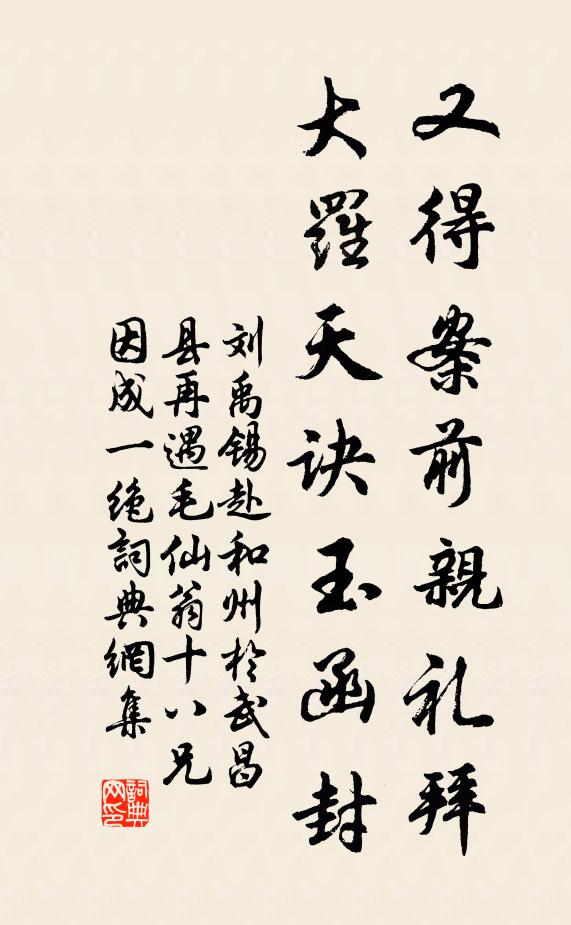 又得案前親礼拜
大羅天诀玉函封
刘禹锡赴和州於武昌
县再遇毛仙翁十八兄
因成一绝詞典網集
詞典网印